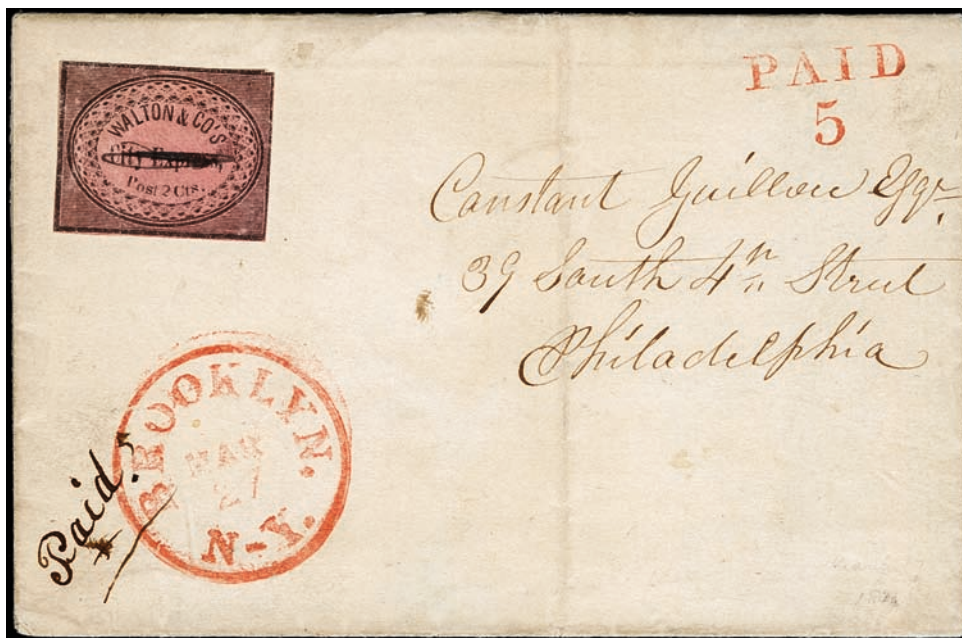 WALTON & CO'S
City Express
Post 2 Cts.
PAID
5
Constant Guillou Esqr.
39 South 4th Street
Philadelphia
BROOKLYN.
MAR
27
N-Y.
Paid.